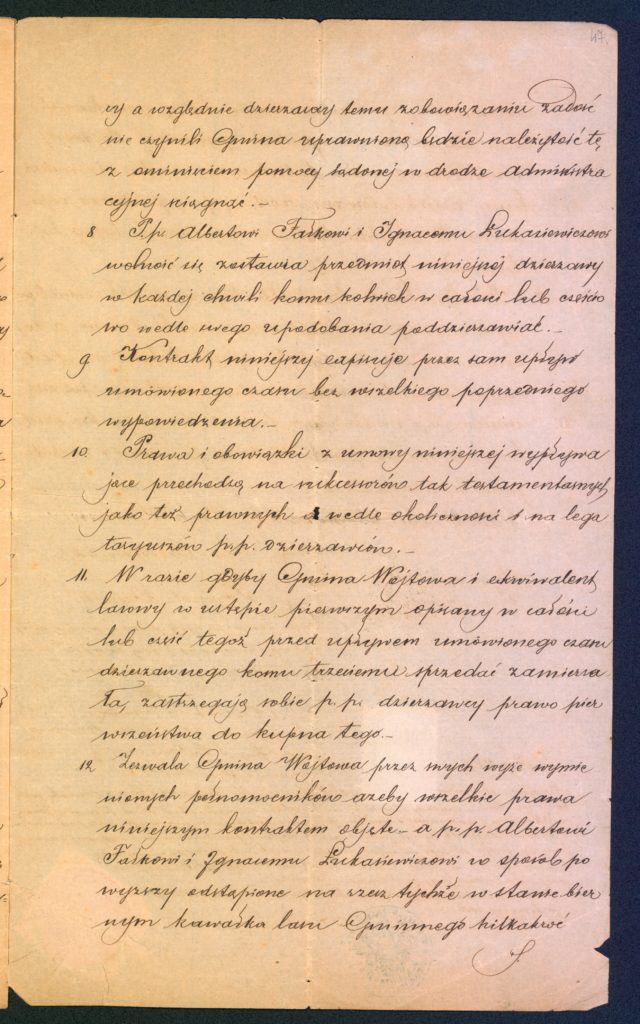 47.
cy a względnie dzierzawcy temu zobowiązaniu zadość
nie czynili Gmina uprawnioną będzie należytość tę
z ominięciem pomocy sądowej w drodze administra
cyjnej ściągnąć.—
8 P.p. Albertowi Faśkowi i Ignacemu Łukasiewiczowi
wolność się zostawia przedmiot niniejszej dzierzawy
w każdej chwili komu kolwiek w całości lub częścio
wo wedle swego upodobania poddzierzawiać.—
9 Kontrakt niniejszy expiruje przez sam upływ
umówionego czasu bez wszelkiego poprzedniego
wypowiedzenia.—
10. Prawa i obowiązki z umowy niniejszej wypływa
jące przechodzą na sukcessorów tak testamentarnych
jako też prawnych a wedle okoliczności i na lega
taryuszów p.p. dzierzawców.—
11. W razie gdyby Gmina Wójtowa i ekwiwalent
lasowy w ustępie pierwszym opisany w całości
lub część tegoż przed upływem umówionego czasu
dzierzawnego komu trzeciemu sprzedać zamierza
ła, zastrzegają sobie p.p. dzierzawcy prawo pier
wszeństwa do kupna tego.—
12 Zezwala Gmina Wójtowa przez swych wyże wymie
nionych pełnomocników azeby wszelkie prawa
niniejszym kontraktem objęte – a p.p. Albertowi
Faśkowi i Ignacemu Łukasiewiczowi w sposób po
wyższy odstąpione na rzecz tychże w stanie bier
nym kawałka lasu Gminnego kilkakroć